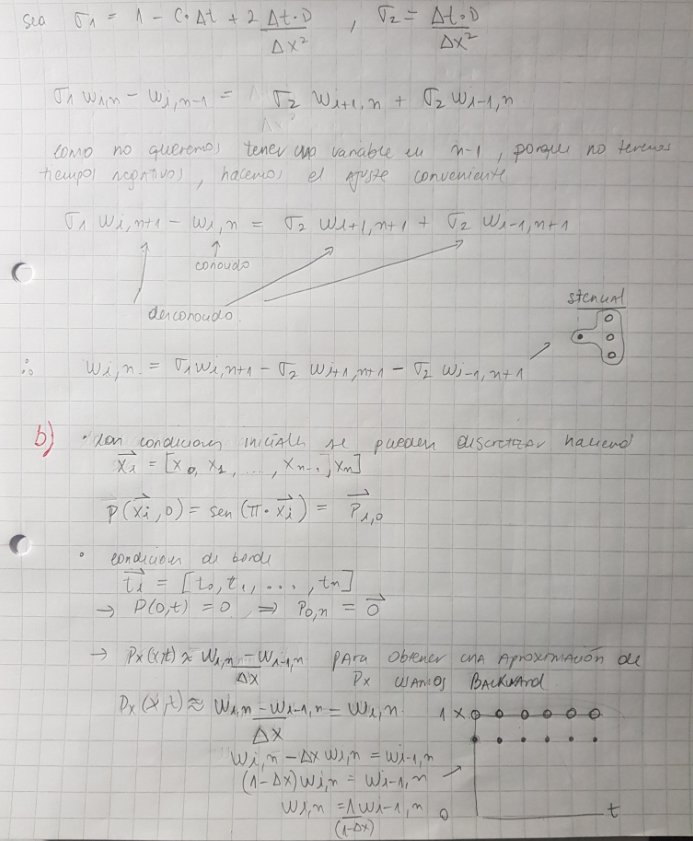 sea σ1 = 1 - C·Δt + 2 Δt·D/Δx² , σ2 = Δt·D/Δx²
σ1 wi,n - wi,n-1 = σ2 wi+1,n + σ2 wi-1,n
como no queremos tener una variable en n-1, porque no tenemos
tiempos negativos, hacemos el ajuste conveniente
σ1 wi,n+1 - wi,n = σ2 wi+1,n+1 + σ2 wi-1,n+1
conocido
desconocido
stencial
∴ wi,n = σ1 wi,n+1 - σ2 wi+1,n+1 - σ2 wi-1,n+1
b) · las condiciones iniciales se pueden discretizar haciendo
xi = [x0, x1, ..., xn-1, xn]
P(xi,0) = sen(π·xi) = Pi,0
· condiciones de borde
ti = [t0, t1, ..., tn]
→ P(0,t) = 0 ⇒ P0,n = 0
→ Px(x,t) ≈ wi,n - wi-1,n / Δx para obtener una aproximación de
Px usamos Backward
Px(x,t) ≈ wi,n - wi-1,n / Δx = wi,n
1 x
wi,n - Δx wi,n = wi-1,n
(1-Δx) wi,n = wi-1,n
wi,n = 1/(1-Δx) wi-1,n
0 t